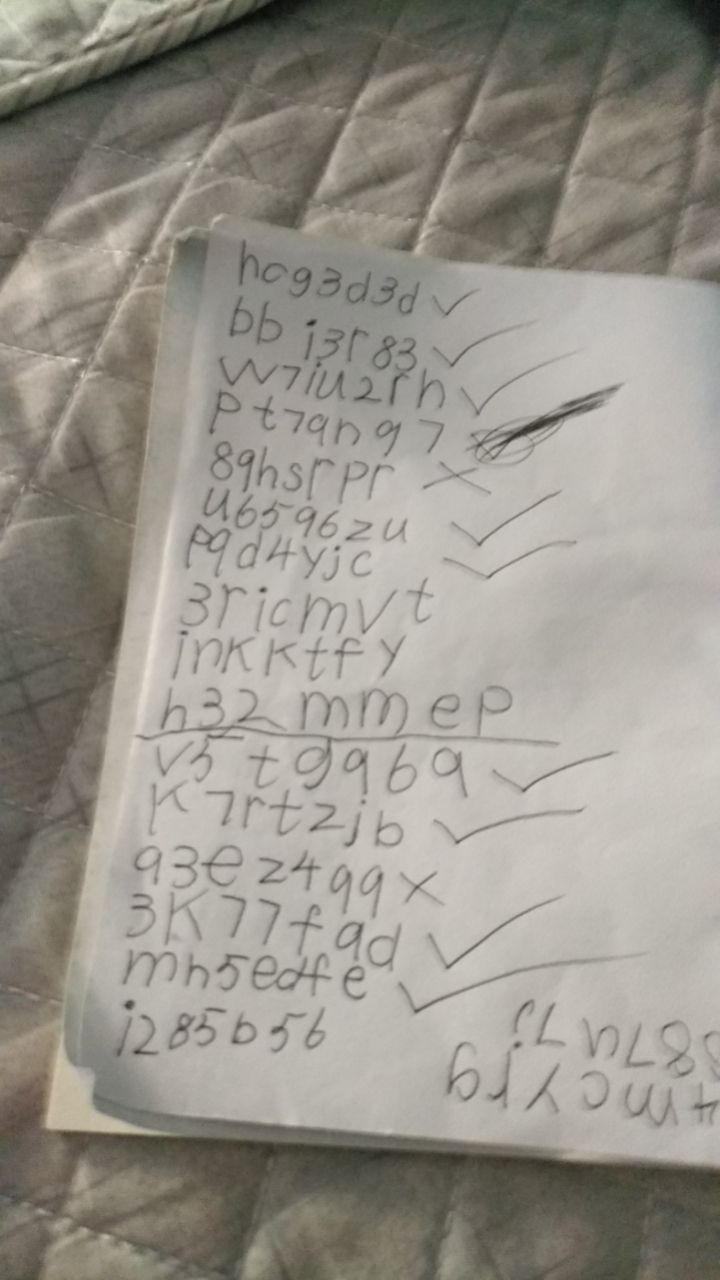 hcg3d3d ✓
bb j3r83 ✓
w7iu2rh ✓
pt7qn97
89hsrpr ×
u6596zu ✓
p9d4yjc ✓
3ricmvt
jnkktfy
h32mmep
v5tg969 ✓
k7rtzjb ✓
93ez499 ×
3k77f9d ✓
mh5edfe ✓
j285b56
4mcyrjg